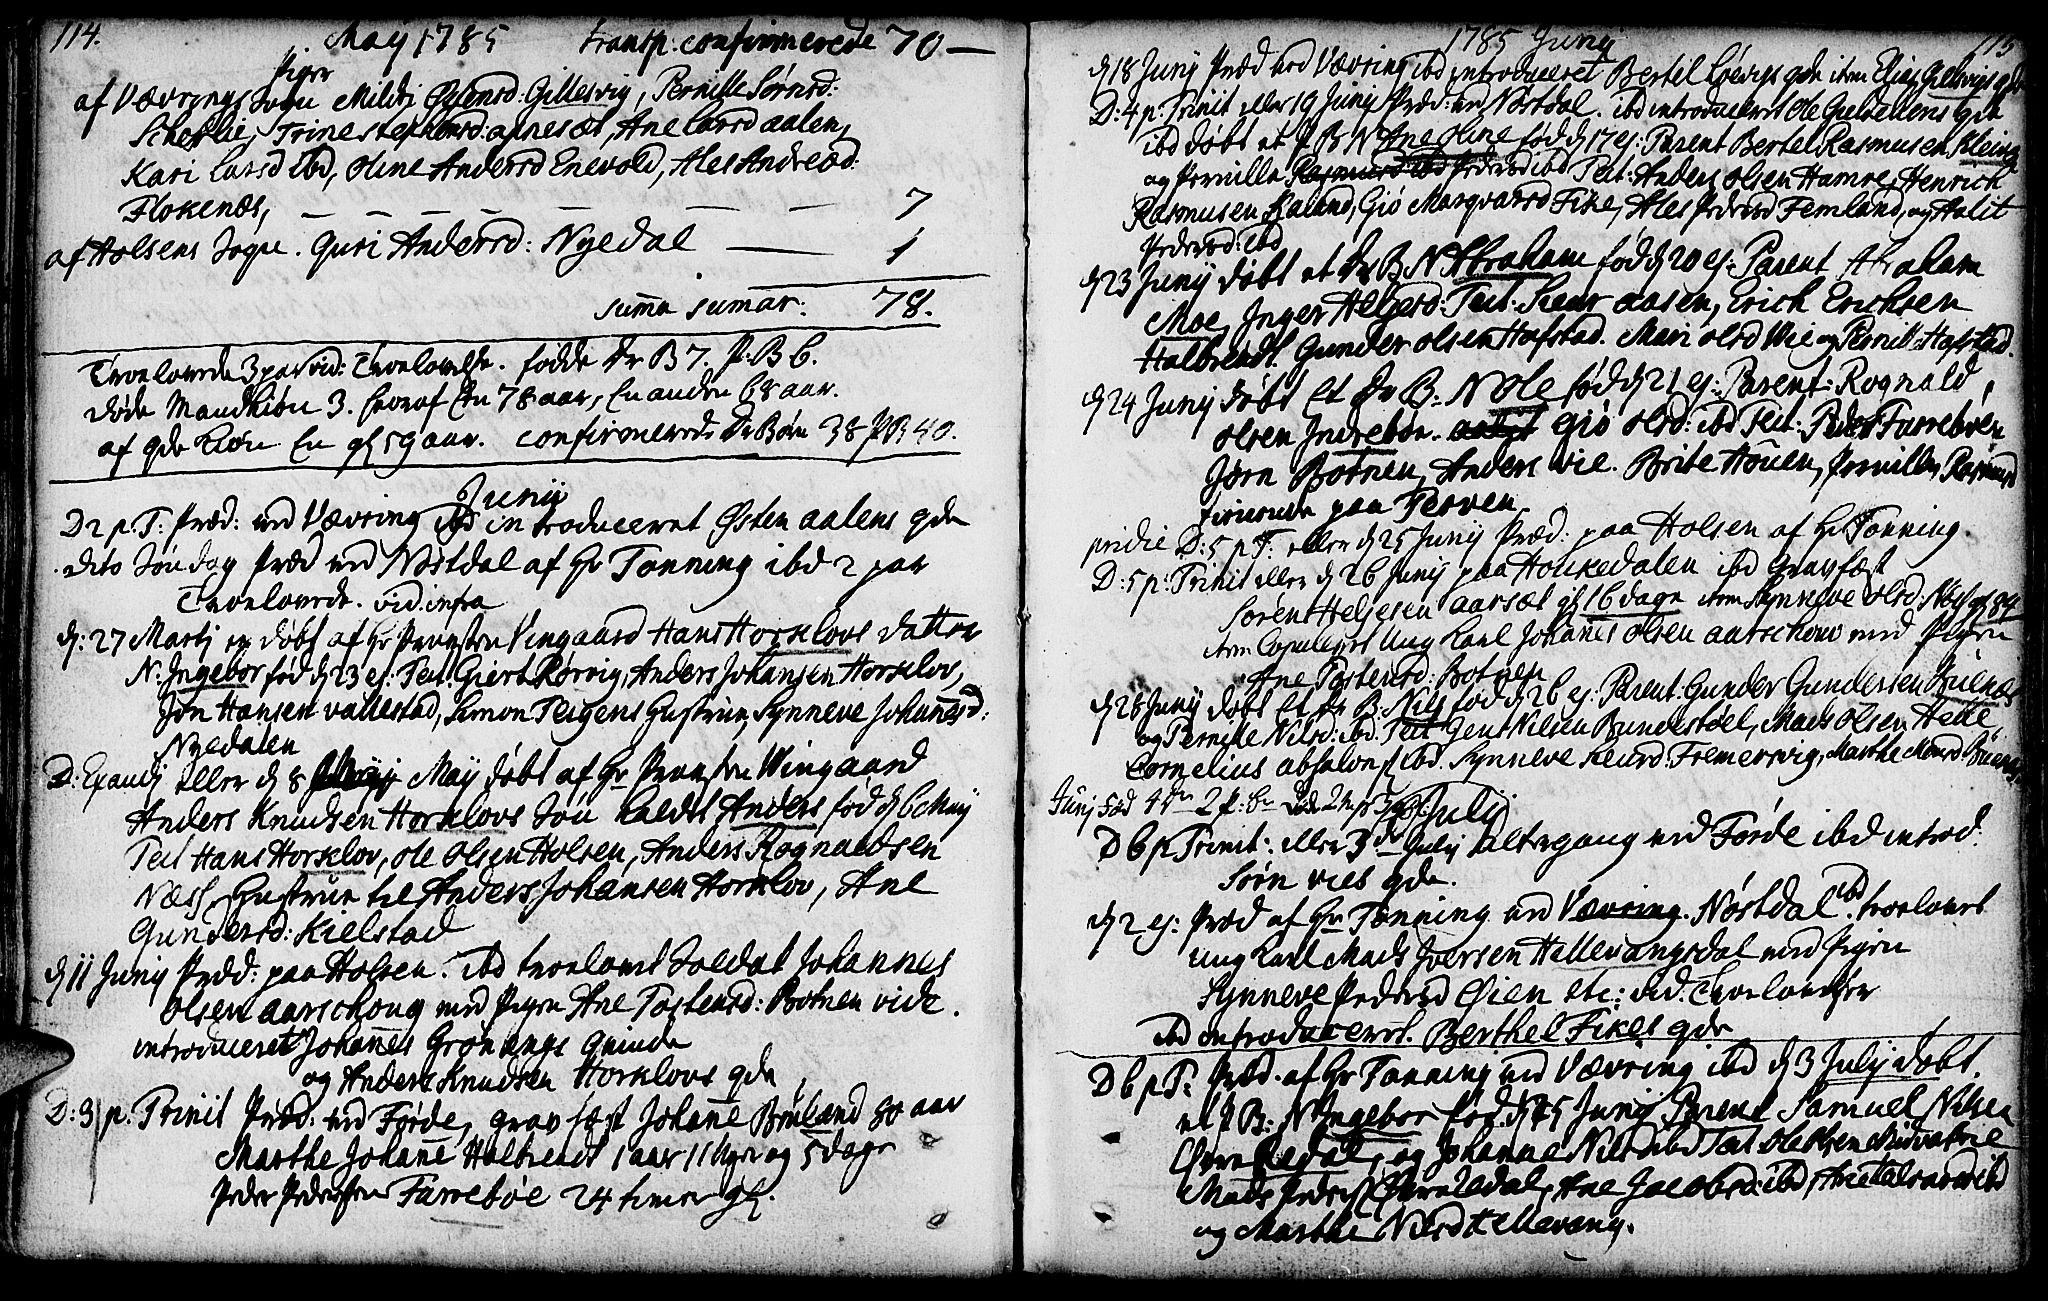 114.
Maij 1785 transp: confirmerede 70 —
piger
af Vævrings Sogn Mildri Østensd: Gillesvig, Pernille Sørnsd:
Trine Stephensd: Ane Larsd aalen,
Kari Larsd ibd, Oline Andersd Enevold, Ales Andreæd:
Flokenæs, — — — — — — — 7
af Holsens Sogn. Guri Andersd: Nyedal — 1
summa sumar: 78.
Troelovede 3 par vid: Trovlovelse. fødde Dr B 7. P. B 6.
døde Mandkiøn 3. hvoraf En 78 aar, En anden 68 aar.
af qde kiøn En gl 59 aar. confirmerede Dr Børn 38 P B 40.
Junij
D 2 p. T: Præd: ved Vævring ibd introduceret Østen aalens qde
dito Søndag Præd ved Nøstdal af Hr Tønning ibd 2 par
Troelovede. vid. infra
d: 27 Martij er døbt af Hr Provsten Vingaard Hans Horsklovs datter
N: Ingebor fød d 23 ej: Test. Giert Rørvig, Anders Johansen Horsklov,
Jon Hansen vallestad, Simon Teigens Hustrue, Synneve Johannesd:
Nyedalen
D: Exaudj eller d 8 Maij døbt af Hr Provsten Wingaard
Anders Knudsen Horsklovs Søn kaldet Anders fød d 6 Maij
Test Hans Horsklov, Ole Olsen Holsen, Anders Rognaldsen
Næss, Hustrue til Anders Johansen Horsklov, Ane
Gundersd: Kielstad
d 11 Junij Præd: paa Holsen. ibd troelovet Soldat Johannes
Olsen aarschoug med Pigen Ane Tostensd: Botnen vide.
introduceret Johannes Grønings Qvinde
og Anders Knudsen Horsklovs qde
D: 3 p. Trinit Præd. ved Førde, grav fæst Johanne Brúland 80 aar
Marthe Johanne Halbrendt 1 aar 11 Uger og 5 dage
Peder Pedersen Farsebøe 24 timer gl.
1785 Junij
115
d 18 Junij Præd ved Vævring ibd introduceret Bertel Løevigs qde item Elias Gielsvigs qde
D: 4 p: Trinit eller 19 Junij Præd: ved Nøstdal. ibd introduceret Ole qde
ibd døbt et P B N Ane Oline fød d 17 ej: Parent Bertel Rasmusen Kleiva
og Pernille Pedersd ibd Test: Anders Olsen Hamre, Henrich
Rasmusen Høland, Giø Marqvardsd Fixe, Ales Pedersd Femland, og Halit
Pedersd: ibd
d 23 Junij døbt et Dr B N Abraham fød d 20 ej: Parent Abraham
Moe, Inger Helgesd: Test. Siur aasen, Erich Erichsen
Halbrendt. Gunder Olsen Hafstad. Mari Olsd Vie og Pernille Hafstad.
d 24 Junij døbt Et Dr B: N Ole fød d 21 ej: Parent: Rognald
Olsen Indrebøe. Giø Olsd: ibd Test: Peder Farsebøen
Jørn Botnen, Anders vie. Brite Høuen, Pernille Rasmusd
tienende paa Terven
pridie D: 5 p T: eller d 25 Junij Præd: paa Holsen af Hr Tønning.
D: 5 p: Trinit eller d 26 Junij paa Houkedalen ibd Gravfæst
Søren Helgesen aarsæt gl 16 dage item Synneve Olsd: gl 84
item Copuleret Ung karl Johannes Olsen aarschow med Pigen
Ane Tostensd: Botnen
d 28 Junij døbt Et Dr B: Nils fød d 26 ej: Parent: Gunder Gundersen Búenæs
og Pernille Nilsd: ibd Test Jens Nilsen Bundestøel, Mads Olsen Helle
Cornelius absalons ibd. Synneve Siursd: Fremersvig, Marthe Monsd: Búenæs
Junij
Julij
D 6 p Trinit: eller 3de Julij altergang ved Førde ibd introd.
Sørn vies qde.
d 2 ej: Præd af Hr Tønning ved Vævring. Nøstdal ibd troelovet
ung karl Mads Iversen Hellevangsdal med Pigen
Synneve Pedersd Øien etc: vid: Troelovelser
ibd introduceret. Berthel Fixes qde
D 6 p T: Præd. af Hr Tønning ved Vævring ibd d 3 Julij døbt
et P B: N Ingebor fød d 25 Junij Parent Samuel Nilsen
og Johanne Nilsd ibd Test Ole Olsen
Mads Peders Ane Jacobsd: ibd, ibd
og Marthe Nilsd Hellevang.